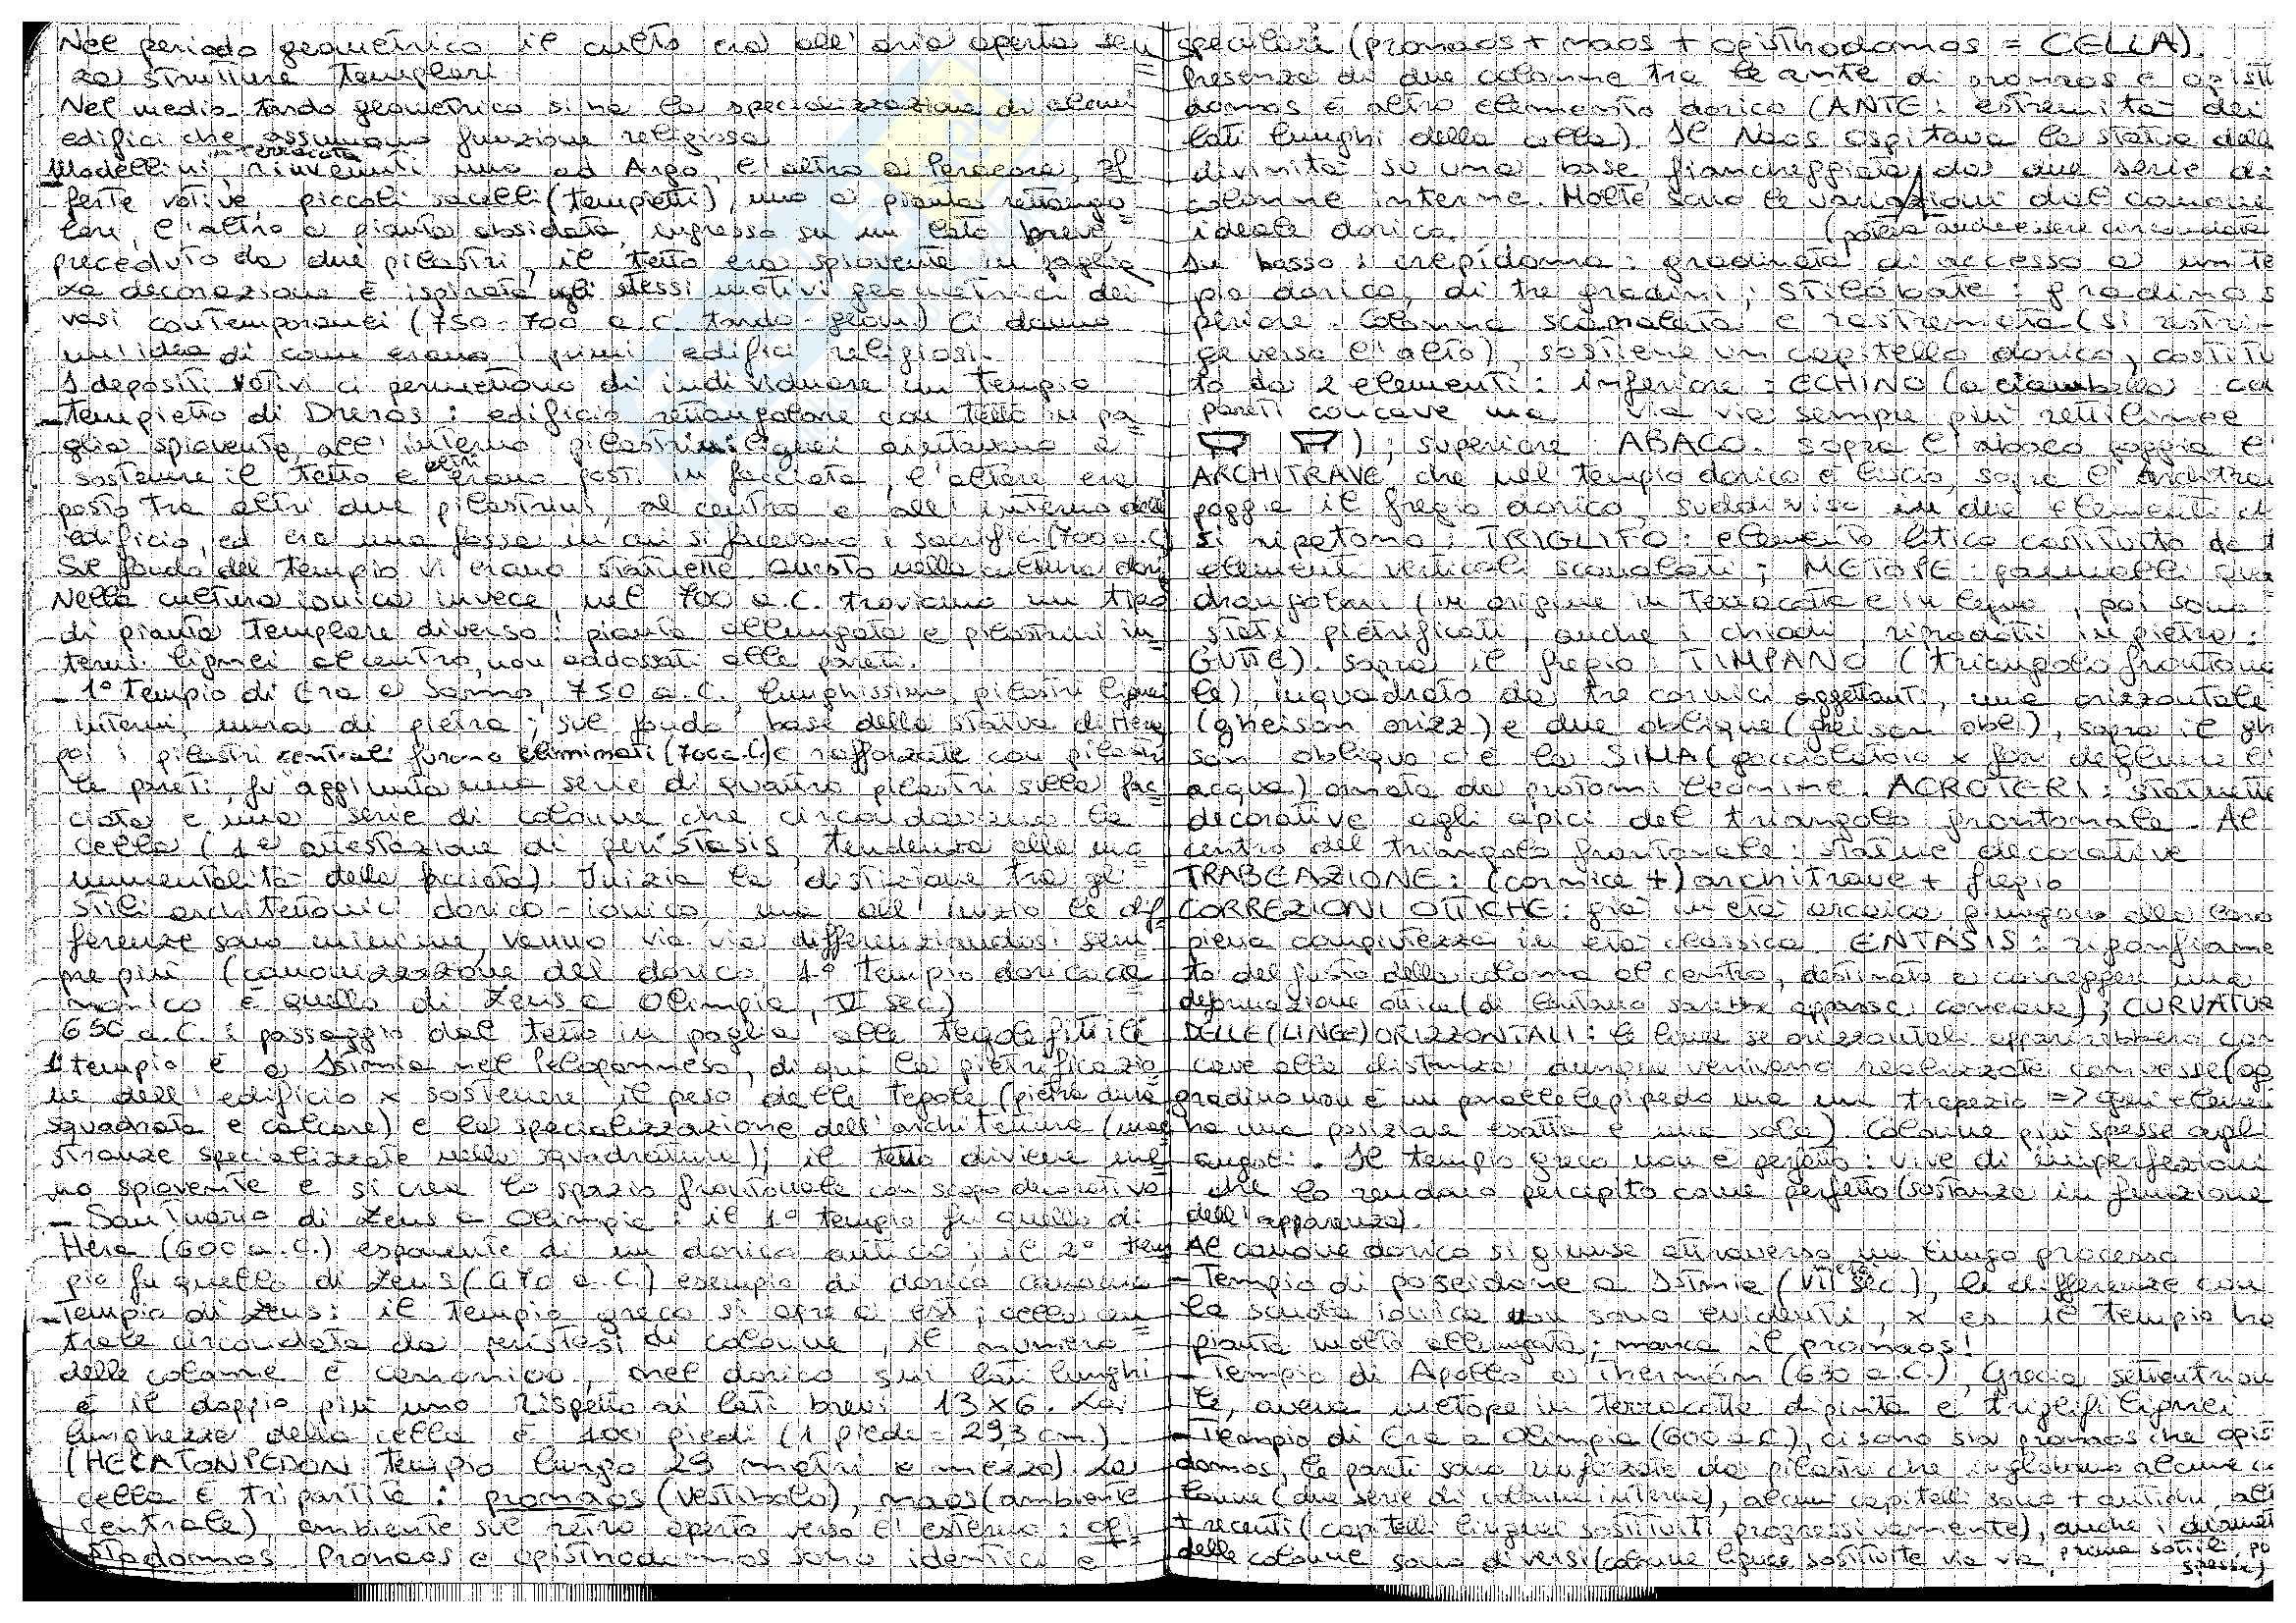 Nel periodo geometrico il culto era all'aria aperta sen
za strutture templari
Nel medio-tardo geometrico si ha la specializzazione di alcuni
edifici che assumono funzione religiosa
- Modellini in terracotta, rinvenuti uno ad Argo, l'altro a Peracora, of
ferte votive, piccoli sacelli (tempietti), uno a pianta rettango=
lare, l'altro a pianta absidata, ingresso su un lato breve
preceduto da due pilastri, il tetto era spiovente in paglia
La decorazione è ispirata agli stessi motivi geometrici dei
vasi contemporanei (750-700 a.C. tardo-geom) Ci danno
un'idea di come erano i primi edifici religiosi.
I depositi votivi ci permettono di individuare un tempio
- tempietto di Dreros: edificio rettangolare con tetto in pa=
glia spiovente, all'interno pilastrini lignei aiutavano a
sostenere il tetto e altri erano posti in facciata, l'altare era
posto tra altri due pilastrini, al centro e all'interno dell'
edificio, ed era una fossa in cui si facevano i sacrifici (700 a.C.)
Sul fondo del tempio vi erano statuette. Questo nella cultura dori
Nella cultura ionica invece, nel 700 a.C. troviamo un tipo
di pianta templare diverso: pianta allungata e pilastrini in=
terni lignei al centro, non addossati alle pareti.
- 1° tempio di Era a Samo, 750 a.C. lunghissimo, pilastri lignei
interni, mura di pietra; sul fondo base della statua di Hera
poi i pilastri centrali furono eliminati (700 a.C.) e rafforzate con pilastri
le pareti, fu aggiunta una serie di quattro pilastri sulla fac=
ciata e una serie di colonne che circondavano la
cella (1a attestazione di peristasis, tendenza alla mo
numentalità della facciata). Inizia la distinzione tra gli
stili architettonici dorico-ionico, ma all'inizio le dif
ferenze sono minime, vanno via via differenziandosi sem
pre più (canonizzazione del dorico 1° tempio dorico ca=
nonico è quello di Zeus a Olimpia, V sec)
650 a.C.: passaggio dal tetto in paglia alle tegole fittili
1° tempio è a Istmia nel Peloponneso, di qui la pietrificazio=
ne dell'edificio x sostenere il peso delle tegole (pietra dura
squadrata e calcare) e la specializzazione dell'architettura (mae
stranze specializzate nella squadratura); il tetto diviene me
no spiovente e si crea lo spazio frontonale con scopo decorativo
- Santuario di Zeus a Olimpia: il 1° tempio fu quello di
Hera (600 a.C.) esponente di un dorico antico; il 2° tem
pio fu quello di Zeus (470 a.C.) esempio di dorico canonico
- Tempio di Zeus: il tempio greco si apre a est; cella cen=
trale circondata da peristasi di colonne, il numero
delle colonne è canonico, nel dorico sui lati lunghi
è il doppio più uno rispetto ai lati brevi 13x6. La
lunghezza della cella è 100 piedi (1 piede = 29,3 cm.)
(HECATONPEDON tempio lungo 29 metri e mezzo). La
cella è tripartita: pronaos (vestibolo), naos (ambiente
centrale), ambiente sul retro aperto verso l'esterno: opi
stodomos. Pronaos e opisthodomos sono identici e
speculari (pronaos + naos + opisthodomos = CELLA).
Presenza di due colonne tra le ante di pronaos e opisto
domos è altro elemento dorico (ANTE: estremità dei
lati lunghi della cella). Il Naos ospitava la statua della
divinità su una base, fiancheggiata da due serie di
colonne interne. Molte sono le variazioni dal canone
ideale dorico. (poteva anche essere circondata
In basso: crepidoma: gradinata di accesso a un te
pio dorico, di tre gradini; STILOBATE: gradino s
periore. Colonna scanalata e rastremata (si restri=
ge verso l'alto), sostiene un capitello dorico, costitu
to da 2 elementi: inferiore: ECHINO (a ciambella con
pareti concave ma via via sempre più rettilinee
); superiore ABACO. Sopra l'abaco poggia l'
ARCHITRAVE, che nel tempio dorico è liscio, sopra l'architrav
poggia il fregio dorico, suddiviso in due elementi ch
si ripetono: TRIGLIFO: elemento litico costituito da t
elementi verticali scanalati; METOPE: pannelli qua
drangolari (in origine in terracotta e in legno, poi sono
stati pietrificati, anche i chiodi, riprodotti in pietra:
GUTTE). Sopra il fregio: TIMPANO (triangolo frontona
le), inquadrato da tre cornici aggettanti, una orizzontale
(gheison orizz) e due oblique (gheison obl), sopra il ghe
son obliquo c'è la SIMA (gocciolatoio x far defluire l'
acqua) ornata da protomi leonine. ACROTERI: statuette
decorative agli apici del triangolo frontonale. Al
centro del triangolo frontonale: statue decorative
TRABEAZIONE: (cornice +) architrave + fregio
CORREZIONI OTTICHE: già in età arcaica, giungono alla loro
piena compiutezza in età classica. ENTASIS: rigonfiame
to del fusto della colonna al centro, destinato a correggere una
deformazione ottica (di lontano sarebbe apparsa concava); CURVATUR
DELLE (LINEE) ORIZZONTALI: le linee se orizzontali apparirebbero con
cave alla distanza, dunque venivano realizzate convesse (og
gradino non è un parallelepipedo ma un trapezio => Ogni elemen
ha una posizione esatta e una sola). Colonne più spesse agli
angoli. Il tempio greco non è perfetto: vive di imperfezioni
che lo rendono percepito come perfetto (sostanza in funzione
dell'apparenza).
Al canone dorico si giunse attraverso un lungo processo
- Tempio di Poseidone a Istmia (metà VII sec.), le differenze con
la scuola ionica non sono evidenti, x es il tempio ha
pianta molto allungata; manca il pronaos!
- Tempio di Apollo a Thermòn (630 a.C.), Grecia settentrion
le, aveva metope in terracotta dipinta e triglifi lignei
- Tempio di Era a Olimpia (600 a.C.), ci sono sia pronaos che opis
domos, le pareti sono rinforzate da pilastri che inglobano alcune co
lonne (due serie di colonne interne), alcuni capitelli sono + antichi, alt
+ recenti (capitelli lignei sostituiti progressivamente), anche i diamet
delle colonne sono diversi (colonne lignee sostituite via via, prima sottili, po
spesse)